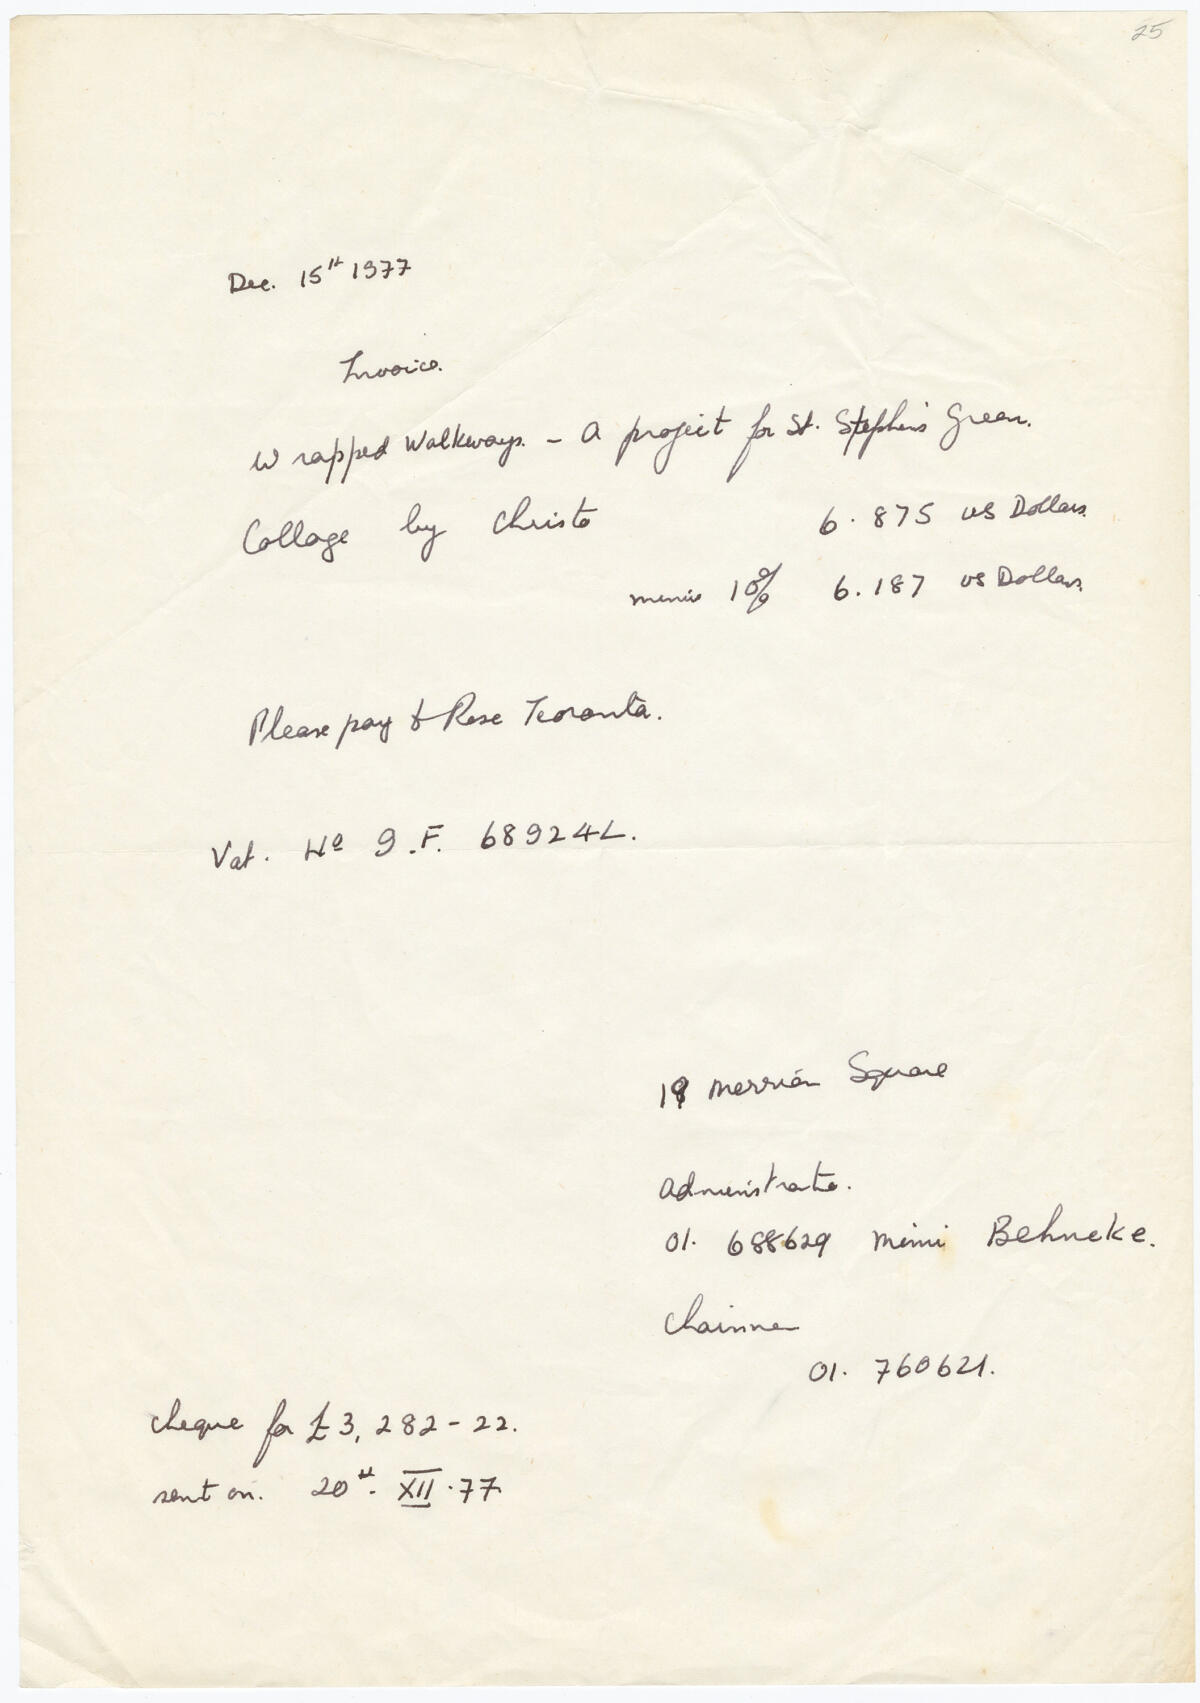 25
Dec. 15th 1977
Invoice.
Wrapped Walkways. - A project for St. Stephen's Green.
Collage by Christo 6.875 US Dollars.
minus 10% 6.187 US Dollars.
Please pay to Rose
Vat. No 9.F. 68924L.
Merrion Square
Administrator.
01. 688629 Mimi Behncke.
Chairman
01. 760621.
cheque for £3,282-22.
sent on. 20th. XII.77